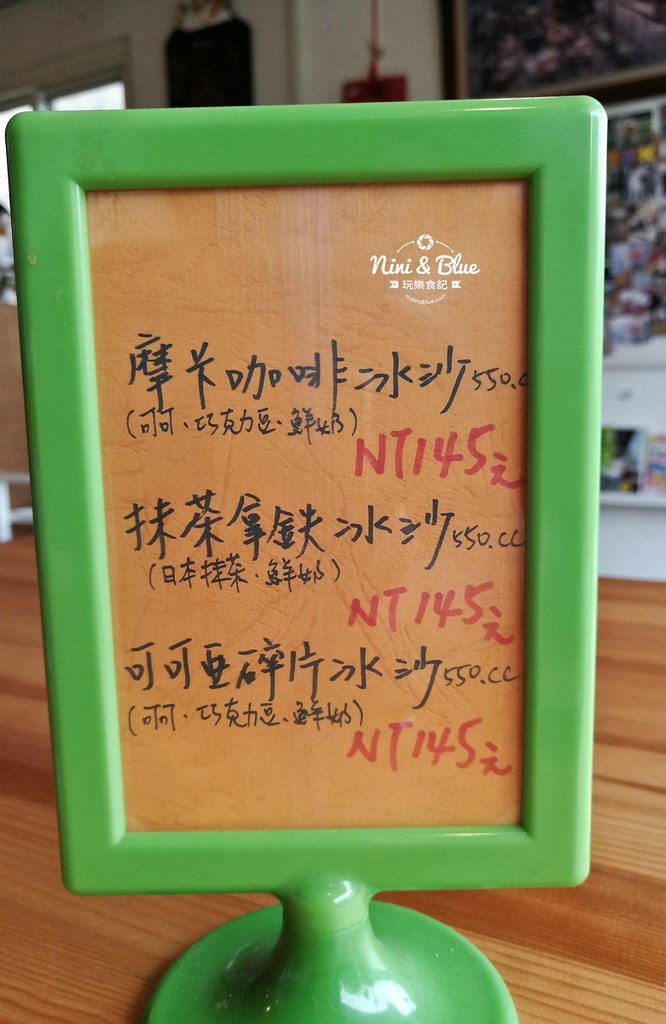 Nini & Blue
玩樂食記
niniandblue.com
摩卡咖啡冰沙550.c
(可可、巧克力豆、鮮奶)
NT145元
抹茶拿鐵冰沙550.cc
(日本抹茶、鮮奶)
NT145元
可可亜碎片冰沙550.cc
(可可、巧克力豆、鮮奶)
NT145元